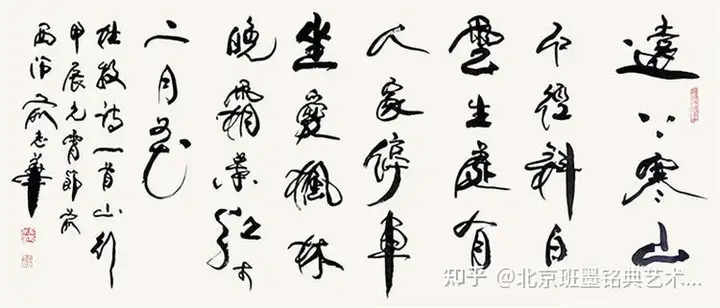 遠上寒山
石徑斜白
雲生處有
人家停車
坐愛楓林
晚霜葉紅於
二月花
杜牧詩一首山行
甲辰元宵節
知乎 @北京班墨铭典艺术...